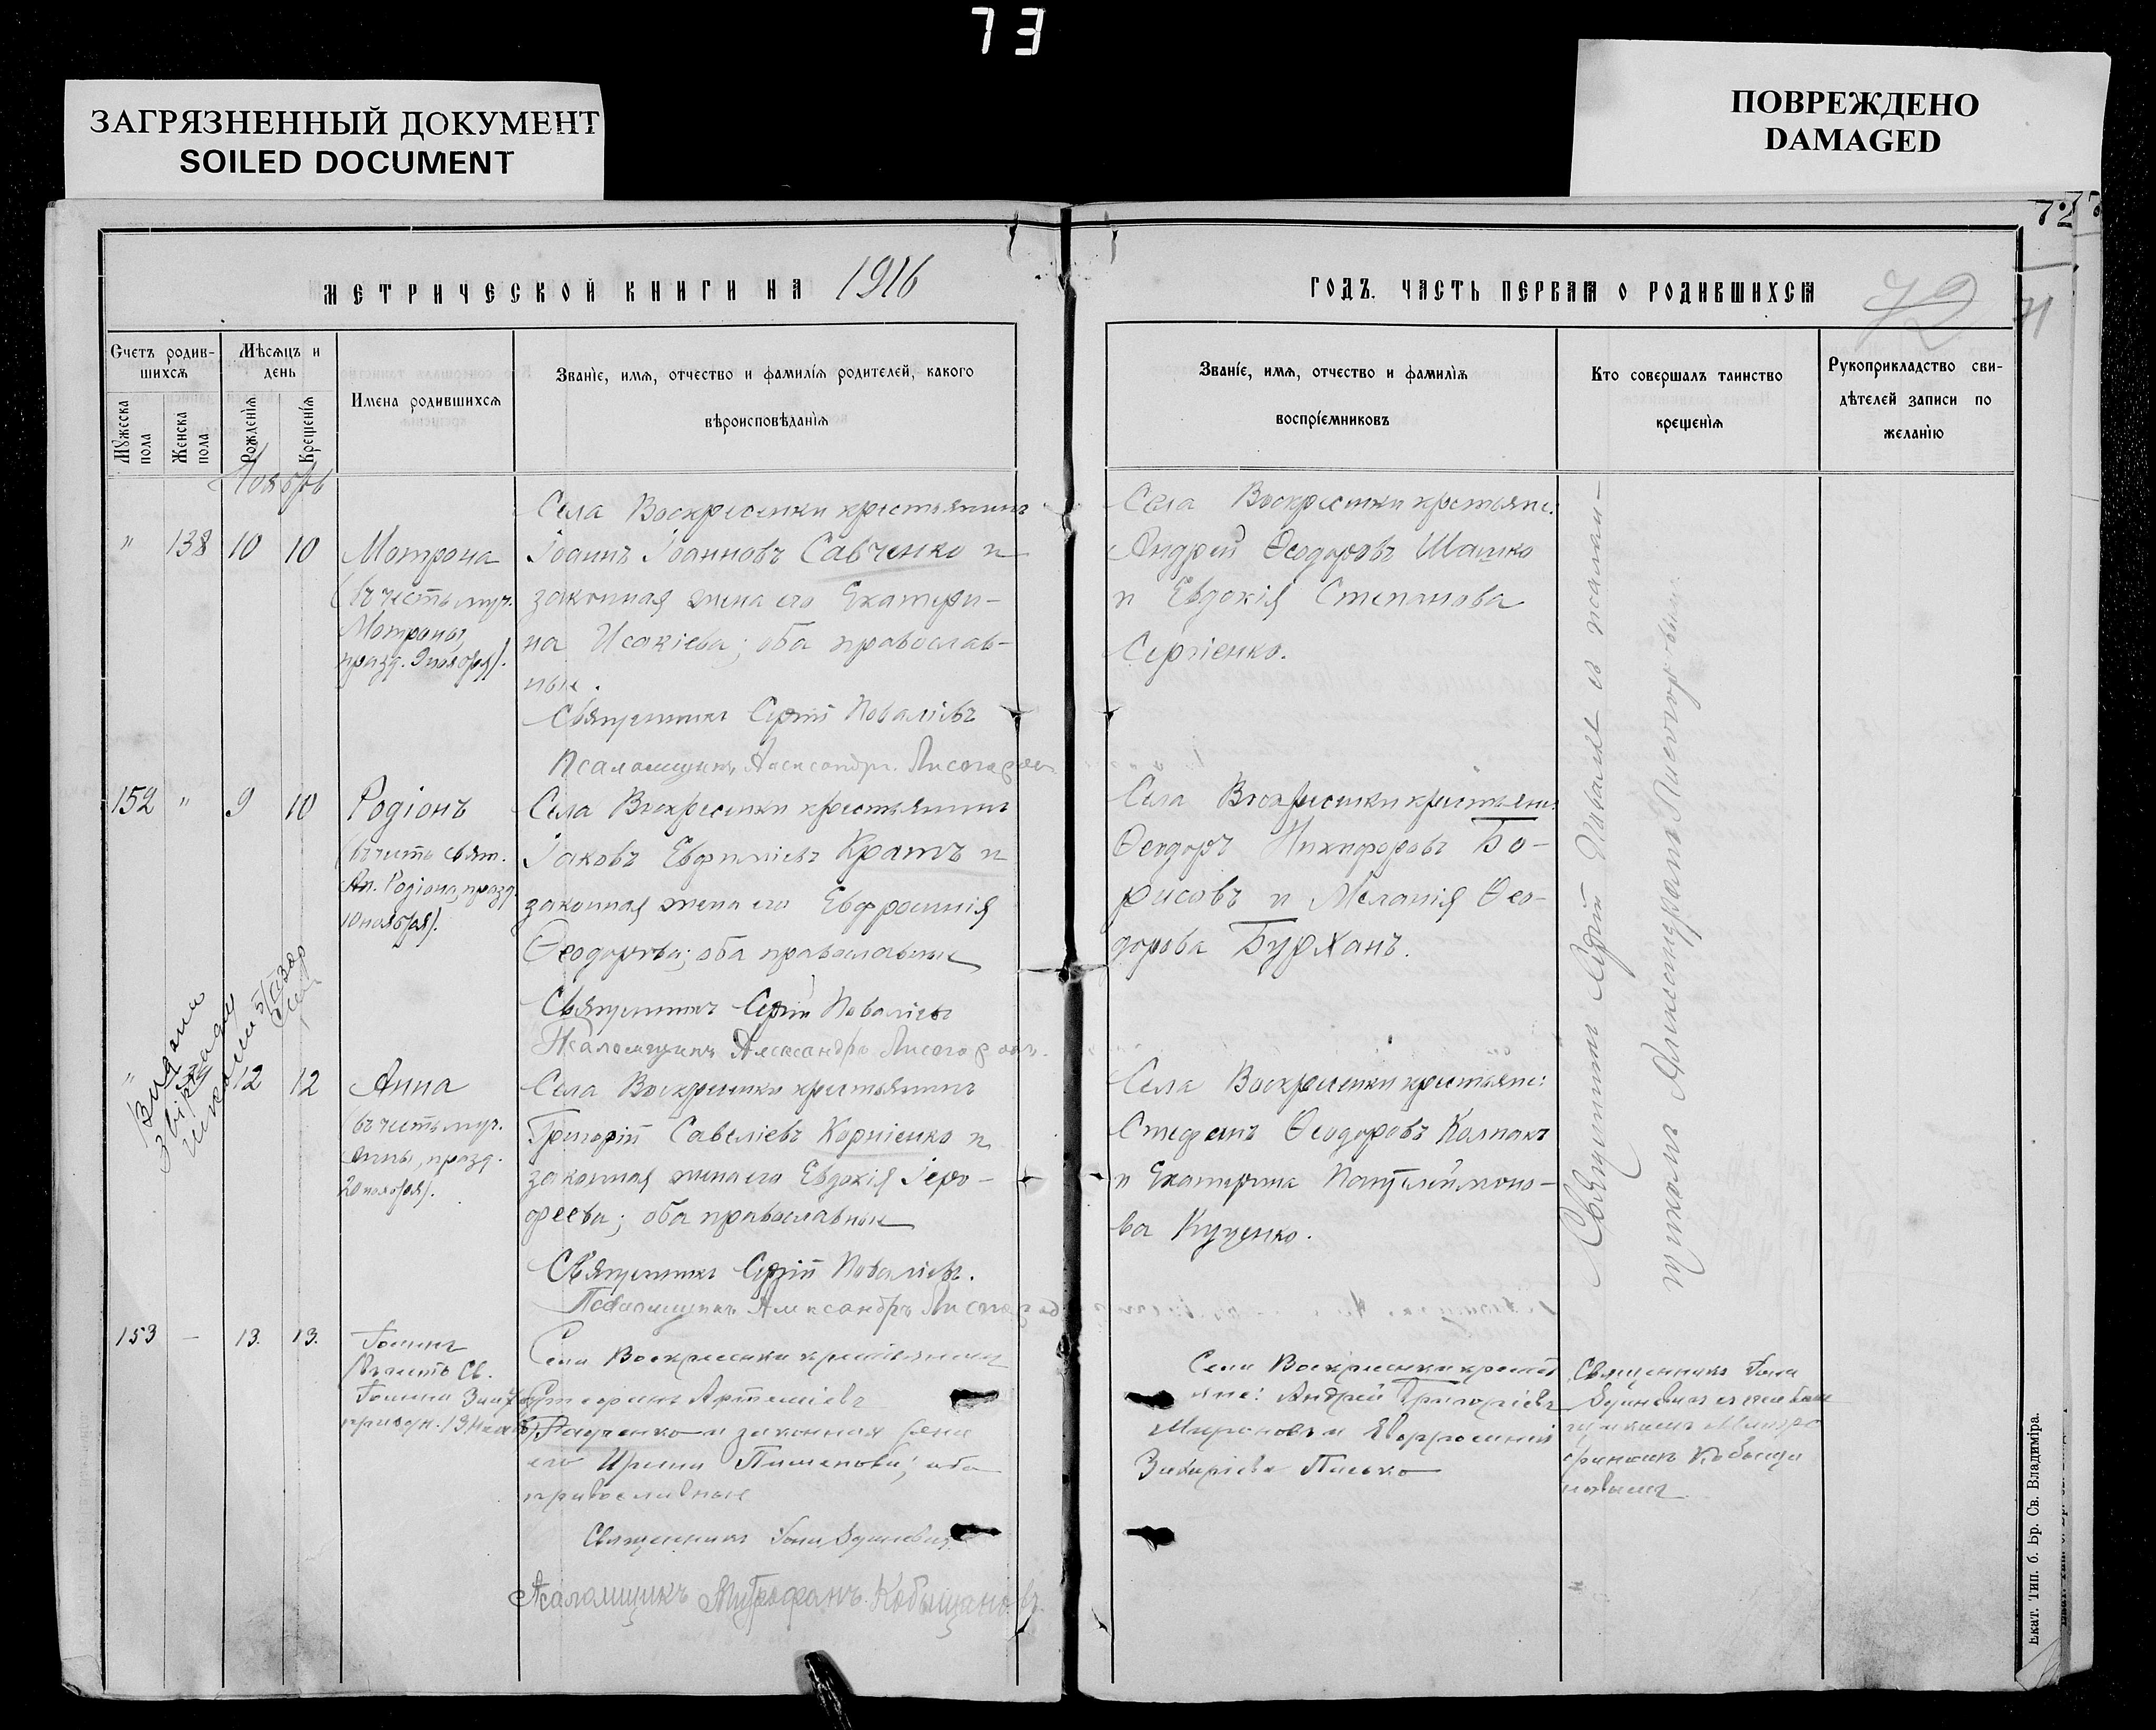 73
ЗАГРЯЗНЕННЫЙ ДОКУМЕНТ
SOILED DOCUMENT
ПОВРЕЖДЕНО
DAMAGED
72
МЕТРИЧЕСКОЙ КНИГИ НА 1916
ГОДЪ. ЧАСТЬ ПЕРВАЯ О РОДИВШИХСЯ
72
71
Счетъ родив-
шихся
Мужеска пола
Женска пола
Мѣсяцъ и
день
Рожденія
Крещенія
Имена родившихся
Званіе, имя, отчество и фамилія родителей, какого
вѣроисповѣданія
Званіе, имя, отчество и фамилія
воспріемниковъ
Кто совершалъ таинство
крещенія
Рукоприкладство сви-
дѣтелей записи по
желанію
Ноябрь
" 138 10 10
Мотрона
(въ честь муч.
Мотроны,
празд. 9 ноября).
Села Воскресенки крестьянинъ
Іоаннъ Іоанновъ Савченко и
законная жена его Екатери-
на Исакіева; оба православ-
ные.
Священникъ Сергій Поваліевъ
Псаломщикъ Александръ Лисогоровъ
Села Воскресенки крестьяне:
Андрей Ѳеодоровъ Шашко
и Евдокія Степанова
Сергіенко.
152 " 9 10
Родіонъ
(въ честь свят.
Ап. Родіона, празд.
10 ноября).
Села Воскресенки крестьянинъ
Іаковъ Евфиміевъ Кратъ и
законная жена его Евфросинія
Ѳеодорова; оба православные
Священникъ Сергій Поваліевъ
Псаломщикъ Александръ Лисогоровъ.
Села Воскресенки крестьяне:
Ѳеодоръ Никифоровъ Бо-
рисовъ и Меланія Ѳео-
дорова Бурханъ.
" 139 12 12
Анна
(въ честь муч.
Анны, празд.
20 ноября).
Села Воскресенки крестьянинъ
Григорій Савеліевъ Корніенко и
законная жена его Евдокія Іеро-
феева; оба православные
Священникъ Сергій Поваліевъ.
Псаломщикъ Александръ Лисогоровъ
Села Воскресенки крестьяне:
Стефанъ Ѳеодоровъ Колпакъ
и Екатерина Пантелеймоно-
ва Куценко.
Священникъ Сергій Поваліевъ съ псалом-
щикомъ Александромъ Лисогоровымъ
153 — 13. 13.
Іоаннъ
(въ честь Св.
Іоанна Злат.
празд. 13 Нояб.)
Села Воскресенки крестьянинъ
Артеміевъ
и законная жена
его Ирина Пименова; оба
православные
Священникъ Іоаннъ
Псаломщикъ Митрофанъ Кобыщановъ.
Села Воскресенки кресть
яне: Андрей Григоріевъ
Мироновъ и Евфросинія
Захаріева Писько
Священникъ Іоаннъ
съ псалом
щикомъ Митро
фаномъ Кобыща
новымъ
Екат. Тип. б. Бр. Св. Владиміра.